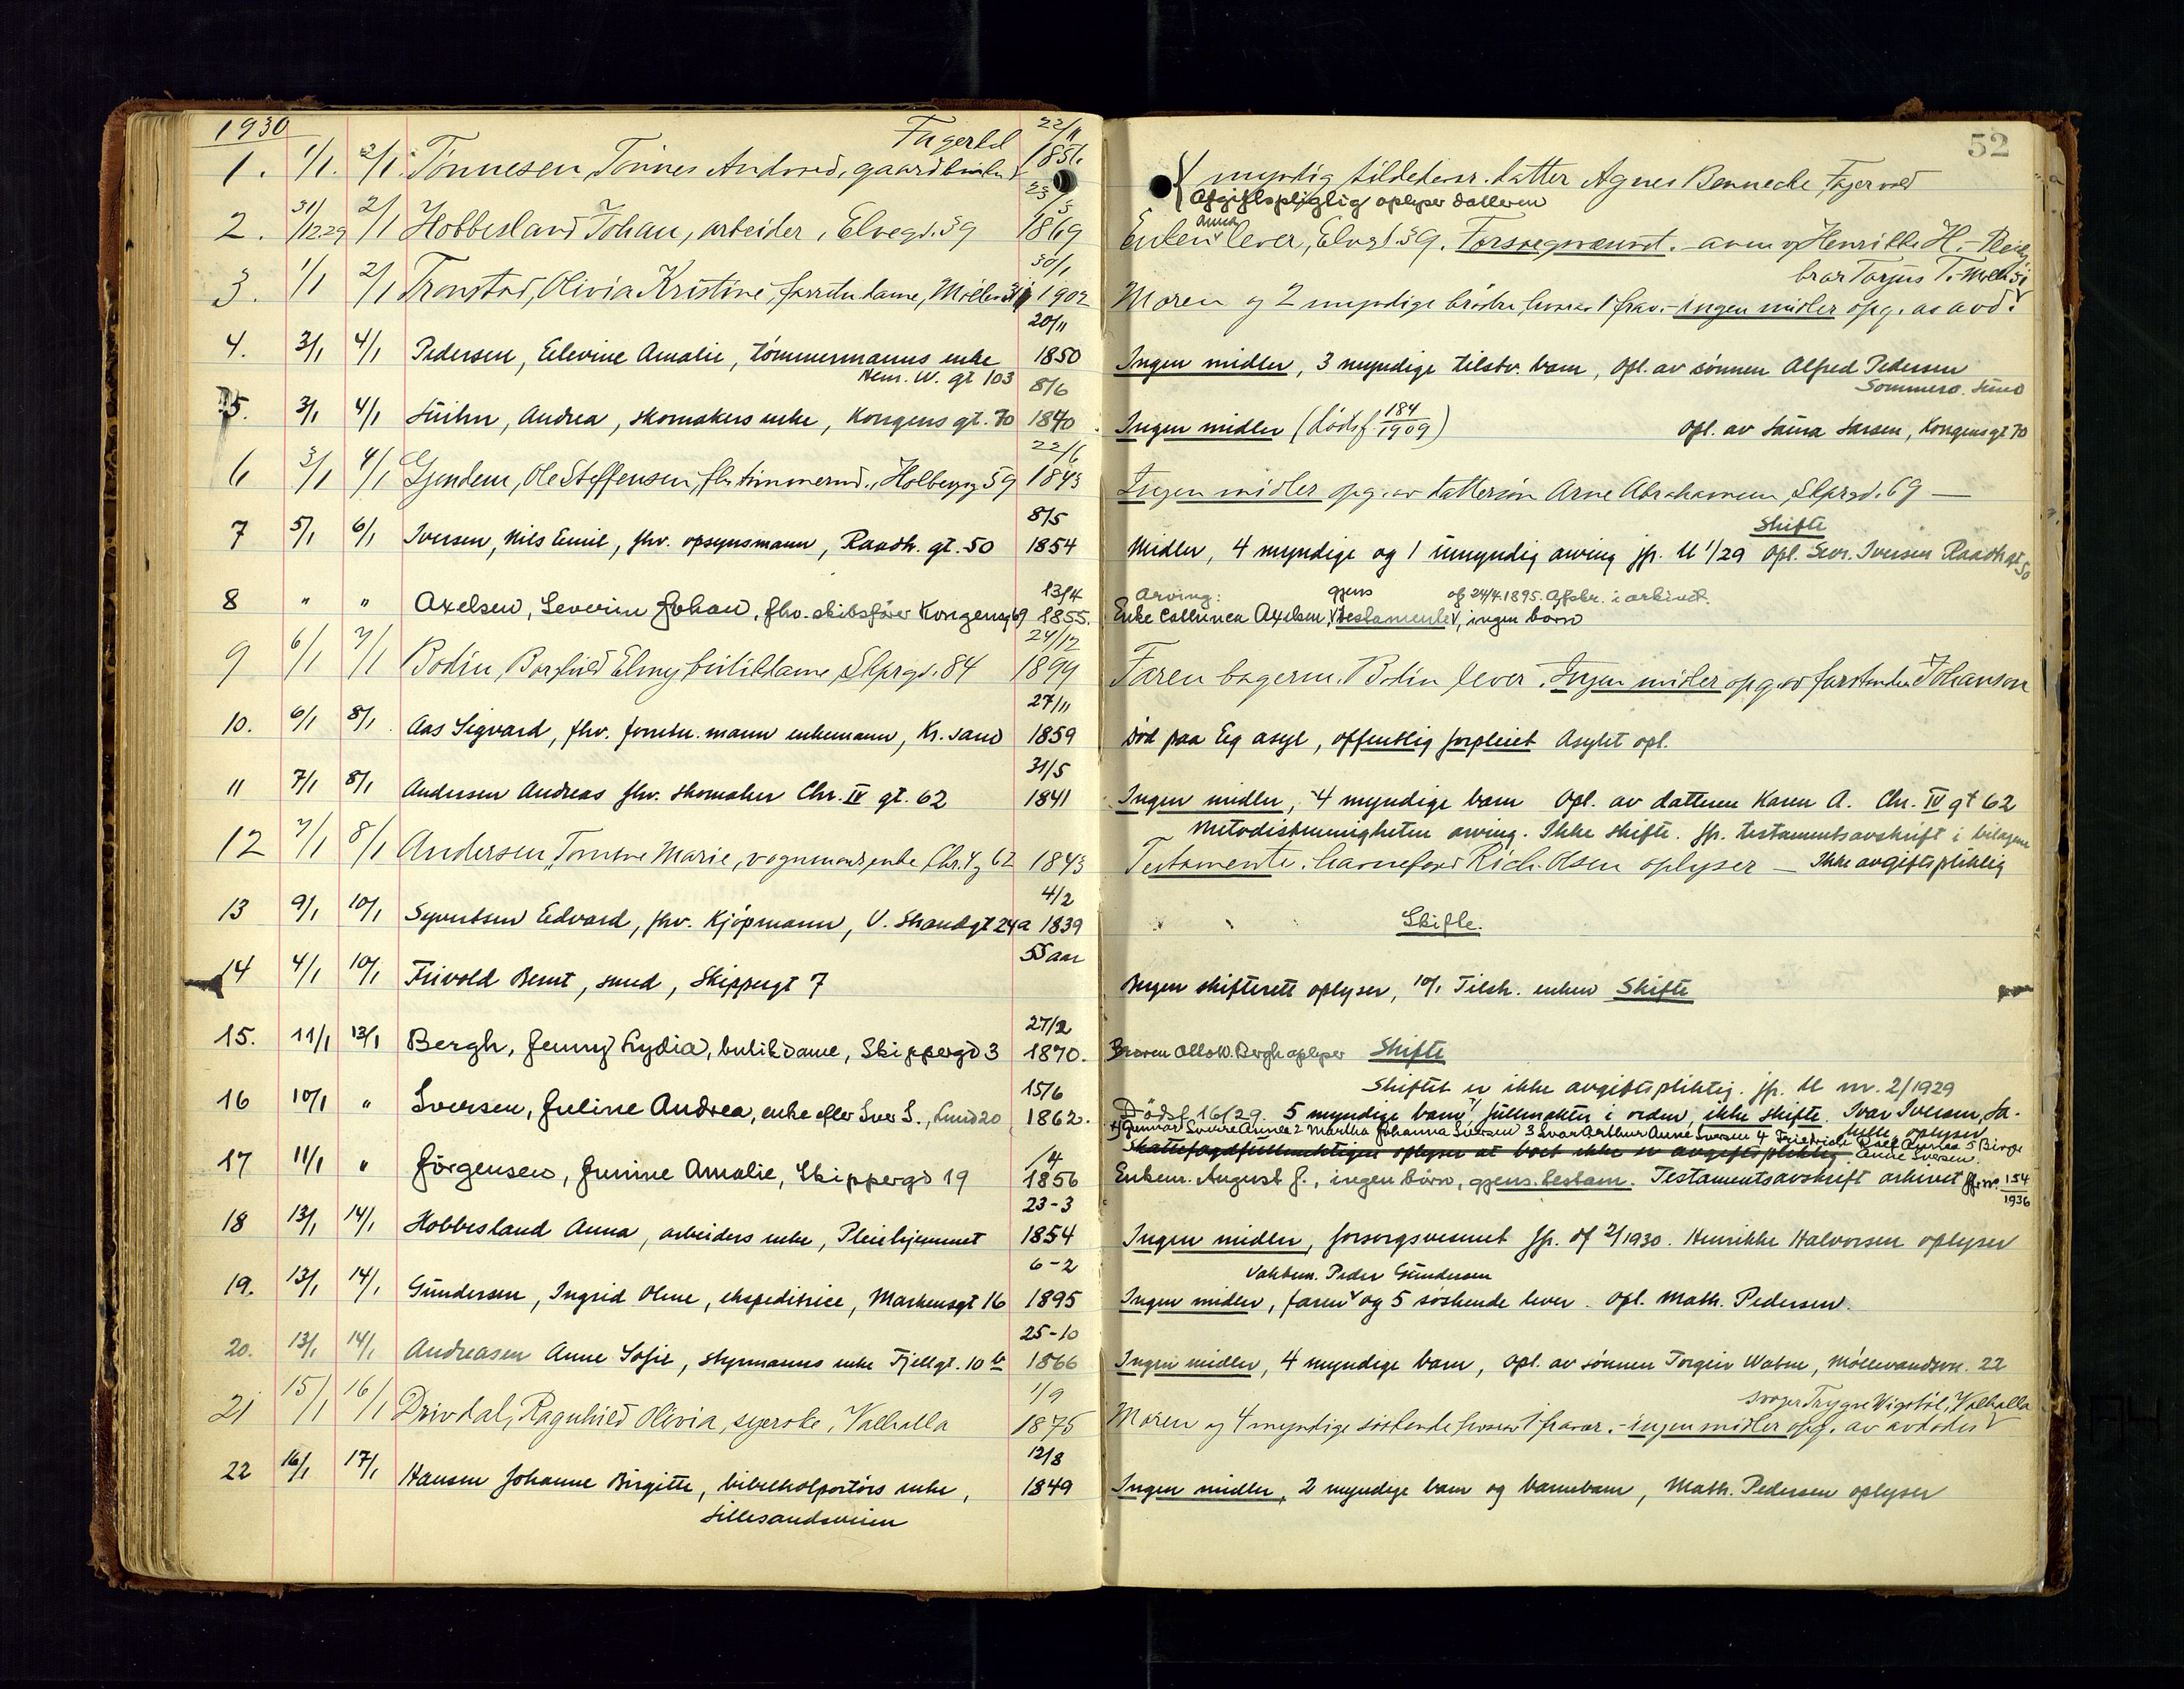 1930
52
Fagervd 22/11
1. 1/1. 2/1. Tønnesen, Tønnes Andreas, gaardbruker 1851. myndig tilstedevær. datter Agnes Bennecke, Fagervold
Afgiftspligtig oplyser datteren
2. 31/12.29 2/1 Hobbesland Johan, arbeider, Elvegd. 59 1869 Enken Anna lever, Elvegt. 59. Forsorgsvesenet. Henrikke H.
30/1
bror Torjus T.
3. 1/1 2/1 Tronstad, Olivia Kristine, forretn. dame, 1902 Moren og 2 myndige brødre, hvorav 1 frav. - ingen midler opg. av avd.
20/11
4. 3/1 4/1 Pedersen, Eelevine Amalie, tømmermanns enke 1850 Ingen midler, 3 myndige tilstv. barn, Opl. av sønnen Alfred Pedersen
Hen. W. gt 103 8/6
5. 3/1 4/1 Andrea, skomakers enke, Kongens gt. 70 1840 Ingen midler (dødsf 184/1909) Opl. av Larsen, Kongensgt 70
22/6
6 3/1 4/1 Gjendem, Ole Steffensen, fhv. tømmermd., Holbergsg 59 1843 Ingen midler opg. av dattersøn Arne Abrahamsen, Skprgd. 69 —
8/5 Skifte
7 5/1 6/1 Iversen, Nils Emil, fhv. opsynsmann, Raadh. gt. 50 1854 Midler, 4 myndige og 1 umyndig arving jfr. U 1/29 Opl. Iversen Raadhgt 50
13/4 Arving: gjens af 24/4.1895. Afskr. i arkivet.
8 " " Axelsen, Severin Johan, fhv. skibsfører Kongensg 69 1855. Enke Cathinca Axelsen, testamente, ingen børn
24/12
9 6/1 7/1 Bodin, Borghild Elmy butikdame, Skprgd. 84 1899 Faren bagerm. Bodin lever. Ingen midler opg. av forstander Johanson
27/11
10. 6/1 8/1 Aas Sigvard, fhv. forretn. mann enkemann, Kr. sand 1859 Død paa Eg asyl, offentlig forpleiet Asylet opl.
31/5
11 7/1 8/1 Andersen Andreas fhv. skomaker Chr. IV gt. 62 1841 Ingen midler, 4 myndige barn Opl. av datteren Karen A. Chr. IV gt 62
Metodistmenigheten arving. Ikke skifte. jfr. testamentsavskrift i bilagene
12 7/1 8/1 Andersen, Tomine Marie, vognmands enke, Chr. 4 g 62 1843 Testamente. Rich. Olsen oplyser — Ikke avgiftspliktig
4/2
13 9/1 10/1 Syvertsen Edvard, fhv. Kjøpmann, V. Strandgt 24a 1839 Skifte.
55 aar
14 4/1 10/1 Frivold Bernt, smed, Skippergt 7 Bergen skifterett oplyser, 10/1 Tilsk. enken Skifte
27/2
15. 11/1 13/1 Bergh, Jenny Lydia, butikdame, Skippergd 3 1870. Broren Otto W. Bergh oplyser Skifte
Skiftet er ikke avgiftspliktig. jfr. U nr. 2/1929
15/6
16 10/1 " Iversen, Juline Andrea, enke efter Iver I., Lund 20 1862. Dødsf. 16/29. 5 myndige barn fullmakter i orden, ikke skifte. Ivar Iversen,
oplyser
1) Gunnar Sverre Annæ 2 Martha Johanna Iversen 3 Ivar Arthur Anne Iversen 4 Friedrich Rolf Annæ 5 Birger
Skattefogdfullmektigen oplyser at boet ikke er avgiftspliktig Anne Iversen.
/4
17 11/1 " Jörgensen, Junine Amalie, Skippergd 19 1856 Enkem. August J., ingen børn, gjens. testam. Testamentsavskrift arkivet jfr. nr. 154/1936
23-3
18 13/1 14/1 Hobbesland Anna, arbeiders enke, Pleiehjemmet 1854 Ingen midler, forsorgsvesenet jfr. df 2/1930. Henrikke Halvorsen oplyser
6-2 Vaktm. Peder Gundersen
19. 13/1 14/1 Gundersen, Ingrid Olene, ekspeditrice, Markensgt 16 1895 Ingen midler, faren og 5 søskende lever. Opl. Math. Pedersen.
25-10
20. 13/1 14/1 Andreasen Anne Sofie, styrmanns enke Fjellgt. 10 b 1866 Ingen midler, 4 myndige barn, Opl. av sønnen Torgeir Watne, Møllevandsvn. 22
1/9 svoger Trygve Vigstøl, Valhalla
21 15/1 16/1 Drivdal, Ragnhild Olivia, syerske, Valhalla 1875 Moren og 4 myndige søskende hvorav 1 fravær. - ingen midler opg. av avdødes
12/8
22 16/1 17/1 Hansen Johanne Birgitte, bibelkolportørs enke, 1849 Ingen midler, 2 myndige barn og barnebarn, Math. Pedersen oplyser
Lillesandsveien